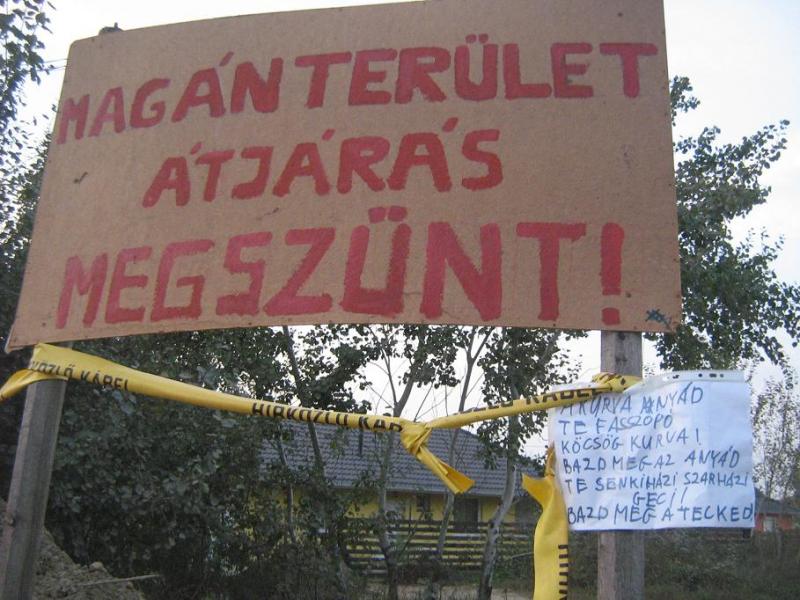 MAGÁNTERÜLET
ÁTJÁRÁS
MEGSZŰNT!
KÖZLŐ KÁBEL
HÍRKÖZLŐ KÁB
A KURVA ANYÁD
TE FASSZOPÓ
KÖCSÖG KURVA!
BAZD MEG AZ ANYÁD
TE SENKIHÁZI SZARHÁZI
GECI!
BAZD MEG A TECKED